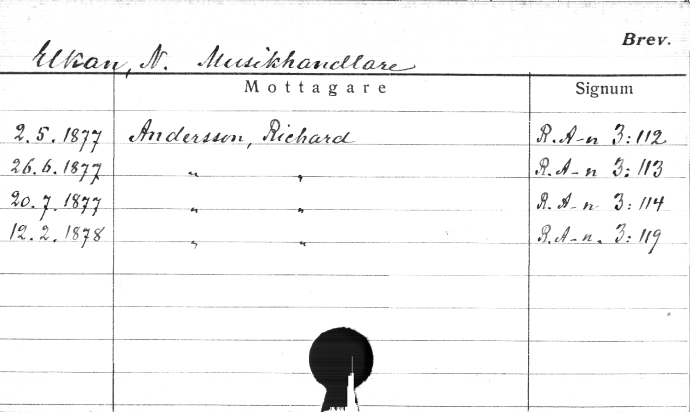 Brev.
Elkan, N. Musikhandlare
Mottagare Signum
2.5.1877 Andersson, Richard R.A-n 3:112
26.6.1877 " " R.A-n 3:113
20.7.1877 " " R.A-n. 3:114
12.2.1878 " " R.A-n. 3:119